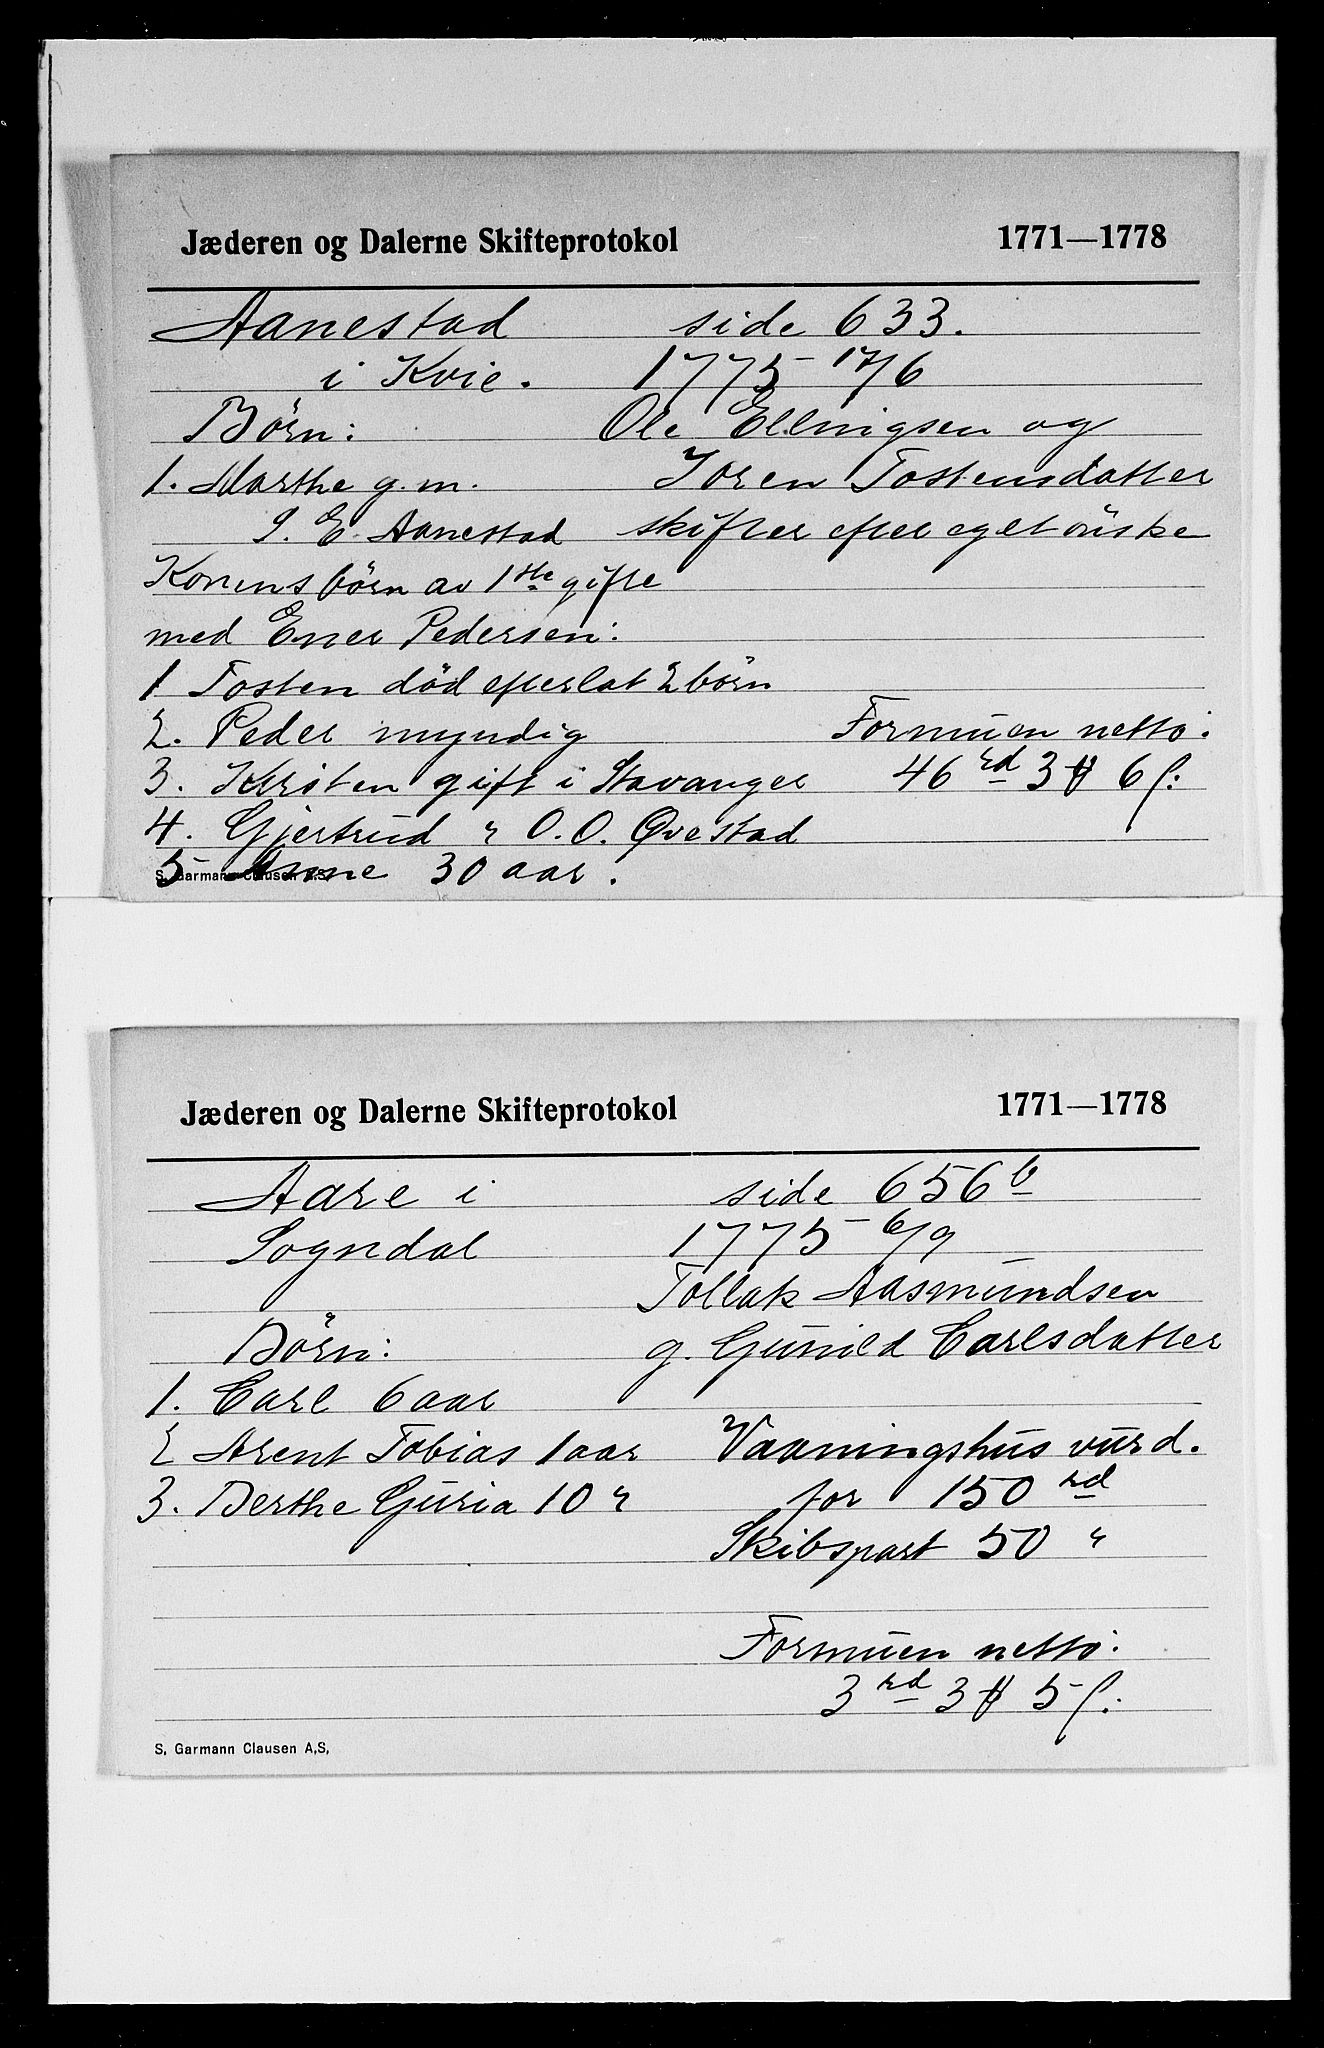 Jæderen og Dalerne Skifteprotokol 1771—1778
Aanestad side 633.
i Kvie. 1775 17/6
Børn: Ole Ellingsen og
1. Marthe g. m. Joren Tostensdatter
S. E. Aanestad skifter efter eget ønske
Konens børn av 1ste gifte
med Ener Pedersen:
1 Tosten død efterlat 2 børn
2. Peder myndig Formuen netto:
3. Kirsten gift i Stavanger 46 rd 3 ₶ 6 ſ:
4. Gjertrud " O. O. Øvestad
5 Anne 30 aar.
S. Garmann Clausen A.S.
Jæderen og Dalerne Skifteprotokol 1771—1778
Aare i side 656 b
Sogndal 1775 6/9
Tollak Aasmundsen
Børn: g. Gunild Carlsdatter
1. Carl 6 aar
2 Arent Tobias 1 aar Vaaningshus vurd.
3. Berthe Guria 10 " for 150 rd
Skibspart 50 "
Formuen netto:
3 rd 3 ₶ 5 ſ:
S. Garmann Clausen A.S.